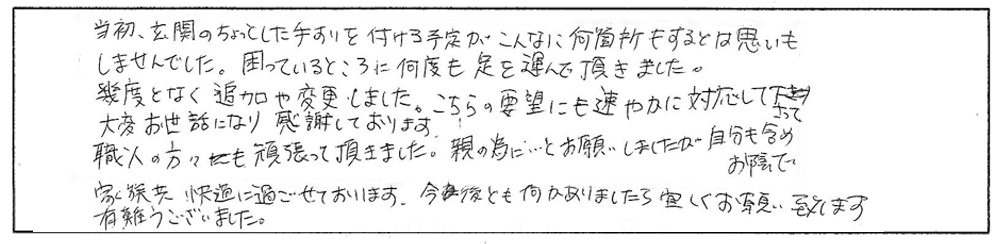 当初、玄関のちょっとした手すりを付ける予定がこんなに何箇所もするとは思いも
しませんでした。困っているところに何度も足を運んで頂きました。
幾度となく追加や変更しました。こちらの要望にも速やかに対応して下さって
大変お世話になり感謝しております。
職人の方々にも頑張って頂きました。親の為に…とお願いしましたが自分も含め
お陰で
家族共快適に過ごせております。今後とも何かありましたら宜しくお願い致します
有難うございました。